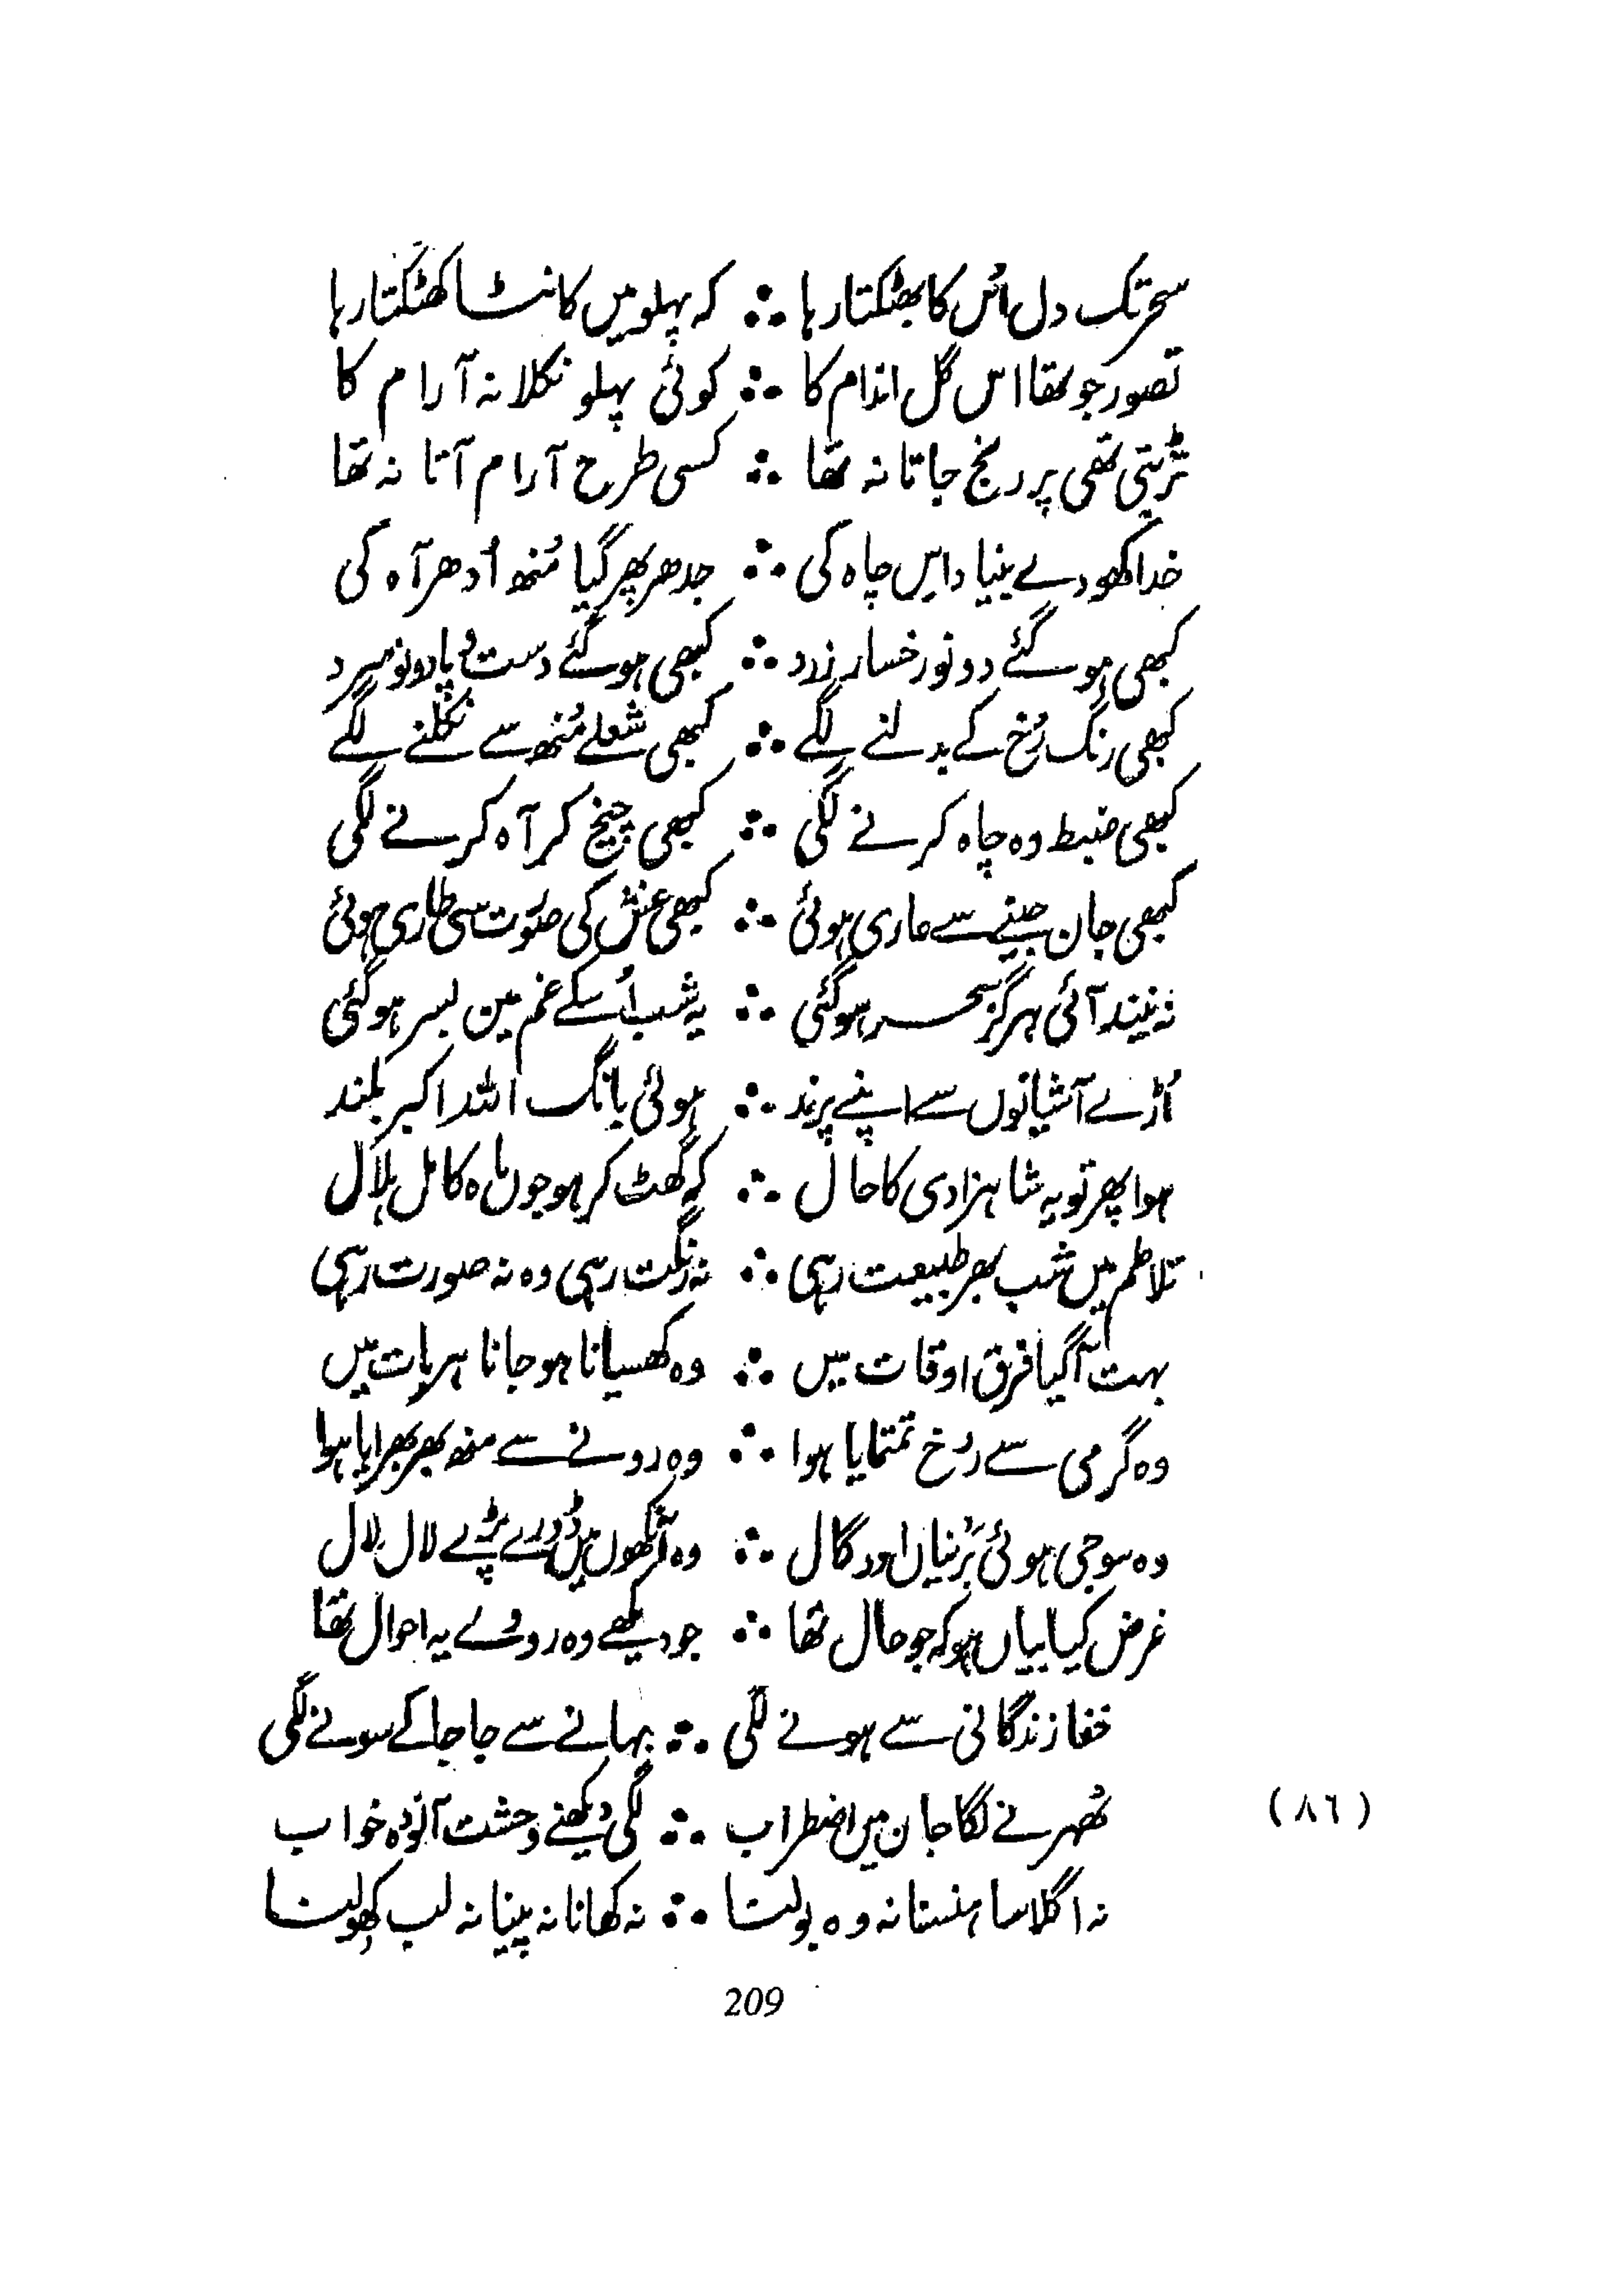 سحر تک دل اُس کا بھٹکتا رہا ∴ کہ پہلو میں کانٹا کھٹکتا رہا
تصور جو تھا اس گل اندام کا ∴ کوئی پہلو نکلا نہ آرام کا
تڑپتی تھی پر رنج جاتا نہ تھا ∴ کسی طرح آرام آتا نہ تھا
خدا کھودے بنیاد اس چاہ کی ∴ جدھر پھر گیا مُنھ اُدھر آہ کی
کبھی ہو گئے دونو رخسار زرد ∴ کبھی ہو گئے دست و پا دونو سرد
کبھی رنگ رُخ کے بدلنے لگے ∴ کبھی شعلے مُنھ سے نکلنے لگے
کبھی ضبط وہ چاہ کرنے لگی ∴ کبھی چیخ کر آہ کرنے لگی
کبھی جان جینے سے عاری ہوئی ∴ کبھی غش کی صورت سی طاری ہوئی
نہ نیند آئی ہرگز سحر ہو گئی ∴ یہ شب اُسکے غم مین بسر ہو گئی
اُڑے آشیانوں سے اپنے پرند ∴ ہوئی بانگ اللہ اکبر بلند
ہوا پھر تو یہ شاہزادی کا حال ∴ کہ گھٹ کر ہو جوں ماہ کامل ہلال
تلاطم میں شب بھر طبیعت رہی ∴ نہ رنگت رہی وہ نہ صورت رہی
بہت آگیا فرق اوقات میں ∴ وہ کھسیانا ہو جانا ہر بات میں
وہ گرمی سے رخ تمتمایا ہوا ∴ وہ رونے سے منھ بھر بھرایا ہوا
وہ سوجی ہوئی پَرنیاں اور گال ∴ وہ آنکھوں میں ڈورے پڑے لال لال
غرض کیا بیاں ہو کہ جو حال تھا ∴ جو دیکھے وہ روئے یہ احوال تھا
خفا زندگانی سے ہونے لگی ∴ بہانے سے جا جا کے سونے لگی
ٹھہرنے لگا جان میں اضطراب ∴ لگی دیکھنے وحشت آلودہ خواب (٨٦)
نہ اگلا سا ہنسنا نہ وہ بولنا ∴ نہ کھانا نہ پینا نہ لب کھولنا
209